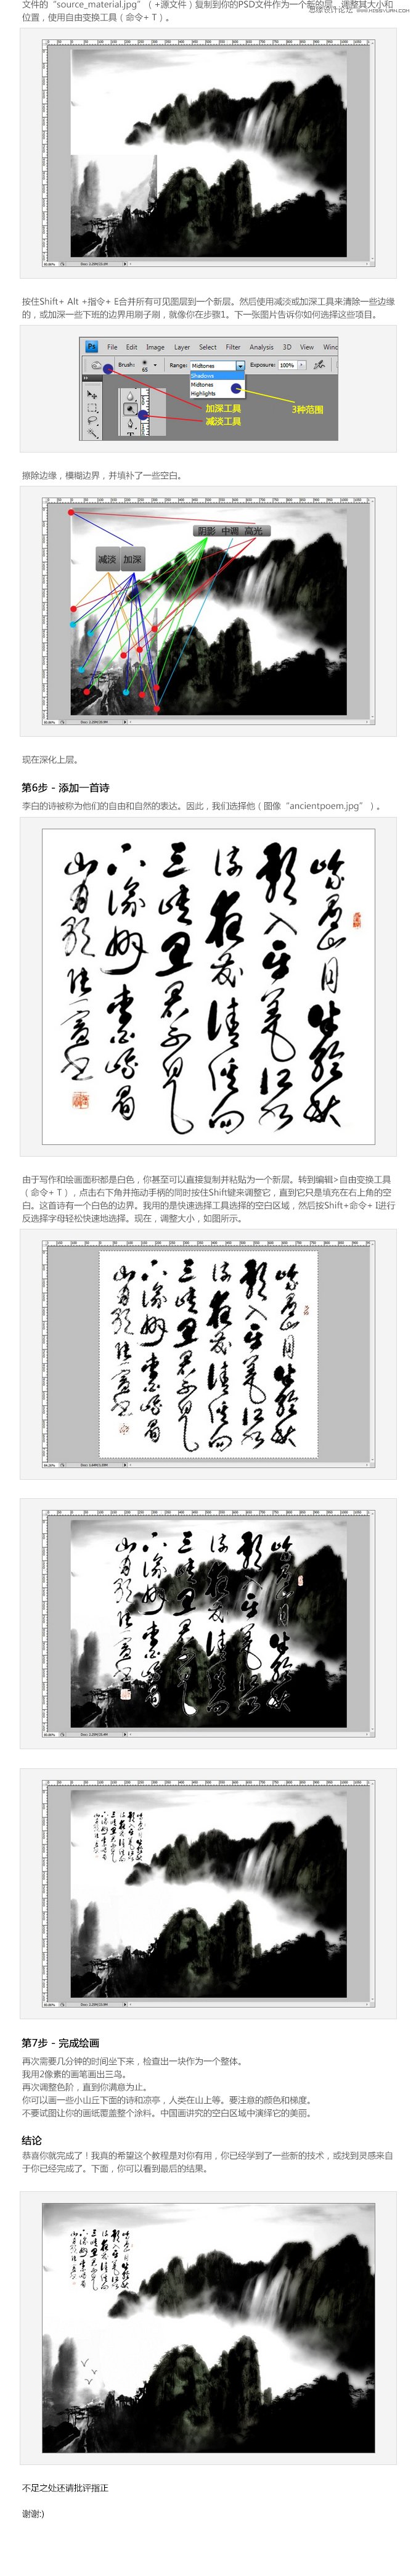 文件的“source_material.jpg”（+源文件）复制到你的PSD文件作为一个新的层。调整其大小和
思缘设计论坛 WWW.MISSYUAN.COM
位置，使用自由变换工具（命令+ T）。
按住Shift+ Alt +指令+ E合并所有可见图层到一个新层。然后使用减淡或加深工具来清除一些边缘
的，或加深一些下班的边界用刷子刷，就像你在步骤1。下一张图片告诉你如何选择这些项目。
Ps File Edit Image Layer Select Filter Analysis 3D View Winc
Brush: 65 Range: Midtones Exposure: 100%
Shadows
Midtones
Highlights
加深工具
减淡工具
3种范围
擦除边缘，模糊边界，并填补了一些空白。
阴影 中调 高光
减淡 加深
现在深化上层。
第6步 - 添加一首诗
李白的诗被称为他们的自由和自然的表达。因此，我们选择他（图像“ancientpoem.jpg”）。
峨眉山月半轮秋
影入平羌江水
流夜发清溪向
三峡思君不见
下渝州李白峨眉
山月歌
由于写作和绘画面积都是白色，你甚至可以直接复制并粘贴为一个新层。转到编辑>自由变换工具
（命令+ T），点击右下角并拖动手柄的同时按住Shift键来调整它，直到它只是填充在右上角的空
白。这首诗有一个白色的边界。我用的是快速选择工具选择的空白区域，然后按Shift+命令+ I进行
反选择字母轻松快速地选择。现在，调整大小，如图所示。
第7步 - 完成绘画
再次需要几分钟的时间坐下来，检查出一块作为一个整体。
我用2像素的画笔画出三鸟。
再次调整色阶，直到你满意为止。
你可以画一些小山丘下面的诗和凉亭，人类在山上等。要注意的颜色和梯度。
不要试图让你的画纸覆盖整个涂料。中国画讲究的空白区域中演绎它的美丽。
结论
恭喜你就完成了！我真的希望这个教程是对你有用，你已经学到了一些新的技术，或找到灵感来自
于你已经完成了。下面，你可以看到最后的结果。
不足之处还请批评指正
谢谢:)